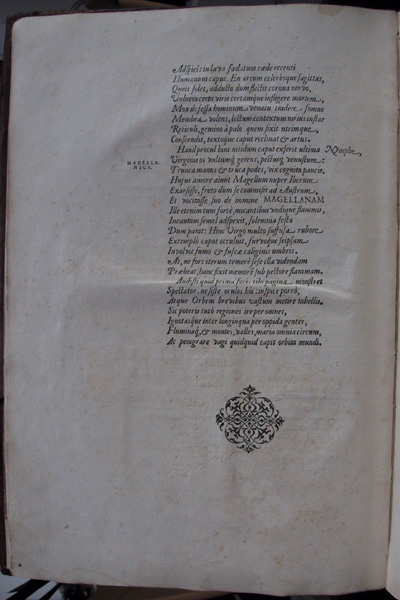 Adspicis in lævi fœdatum cæde recenti
Humanum caput. En arcum celeresque sagittas,
Queis solet, adducto dum flectit cornua nervo,
Vulnera certa viris certamque infigere mortem,
Mox defessa hominum venatu tradere somno
Membra volens, lectum contextum norius instar
Reticuli, gemino à palo quem fixit utrimque,
Conscendit, textoque caput reclinat & artus.
Haud procul hinc nitidum caput exserit ultima Nymphe,
MAGELLA-
NICA.
Virgineos vultumq; gerens, pectusq; venustum:
Trunca manus & truca pedes, vix cognita paucis,
Hujus amore aiunt Magellum nuper Iberum
Exarsisse, freto dum se commisit ad Austrum,
Et vocitasse suo de nomine MAGELLANAM
Ille etenim tum fortè, micantibus undique flammis,
Incautam semel adspexit, solennia festa
Dum parat: Hinc Virgo multo suffusa rubore
Extemplò caput occuluit, furvoque seipsam
Involvit fumo & fuscæ caliginis umbris.
At, ne fors iterum temerè sese illa videndam
Præbeat, hanc fixit memorē sub pectore flammam.
Audisti quid prima foris tibi pagina monstret
Spectator, ne siste oculos hîc: inspice porrò,
Atque Orbem brevibus vastum metire tabellis.
Sic poteris tutò regiones ire per omnes,
Ignotasque inter longinqua per oppida gentes,
Fluminaq;, & montes, valles, maria omnia circum,
Ac peragrare vagi quidquid capit orbita mundi.